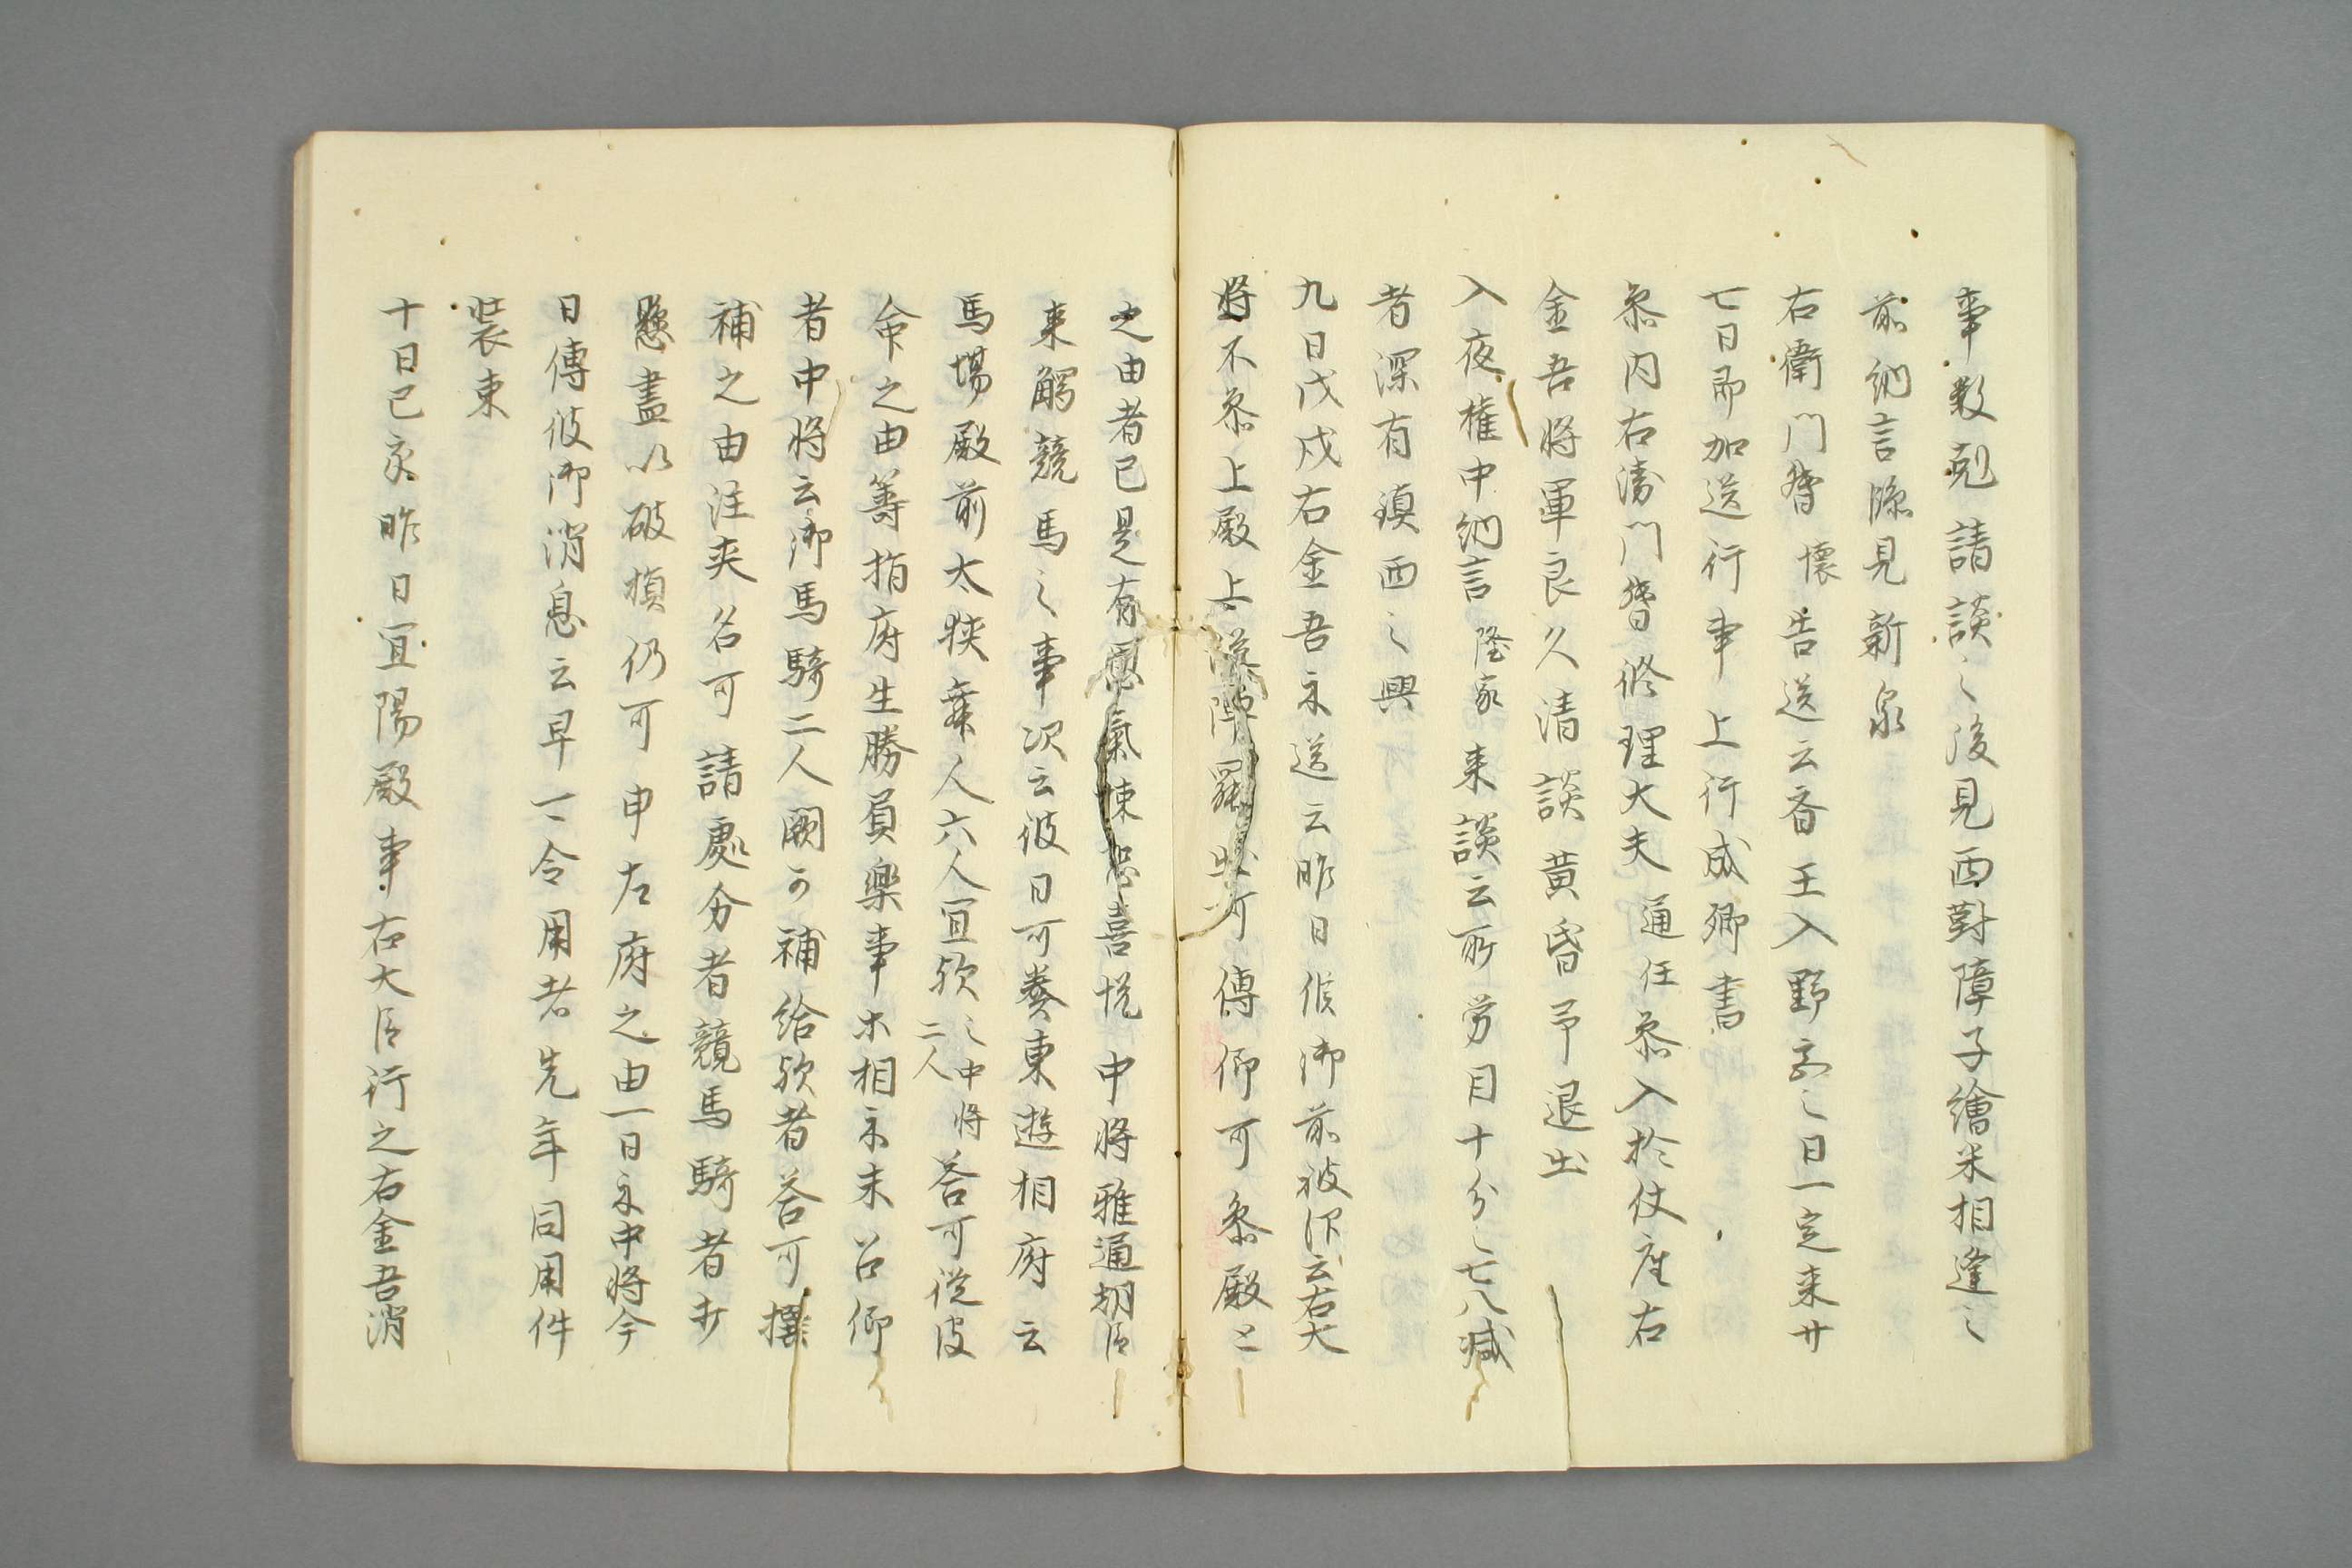 事数剋請談之後見西對障子繪米相逢之
前納言隙見新泉
右衛門督懐告送云斉王入野宮之日一定来廿
七日即加送行事上行成卿書
参内右衛門督修理大夫通任参入於仗座右
金吾将軍良久清談黄昏予退出
入夜権中納言隆家来談云所労目十分之七八減
者深有鎮西之興
九日戊戌右金吾示送云昨日候御前被作云右大
将不参上殿上 陣 可傳仰可参殿上
之由者已是有恩氣悚恐喜悦中将雅通朝臣
来觸競馬之事次云彼日可奏東遊相府云
馬場殿前太狭舞人六人宜歟之中将二人答可従彼
命之由等指府生勝負樂事ホ相示未召仰
者中将云御馬騎二人闕可補給歟者答可撰
補之由注夾名可請處分者競馬騎者オ
懸盡以破損仍可申左府之由一日示中将今
日傳彼御消息云早一令用者先年同用件
装束
十日己亥昨日宜陽殿事右大臣行之右金吾消